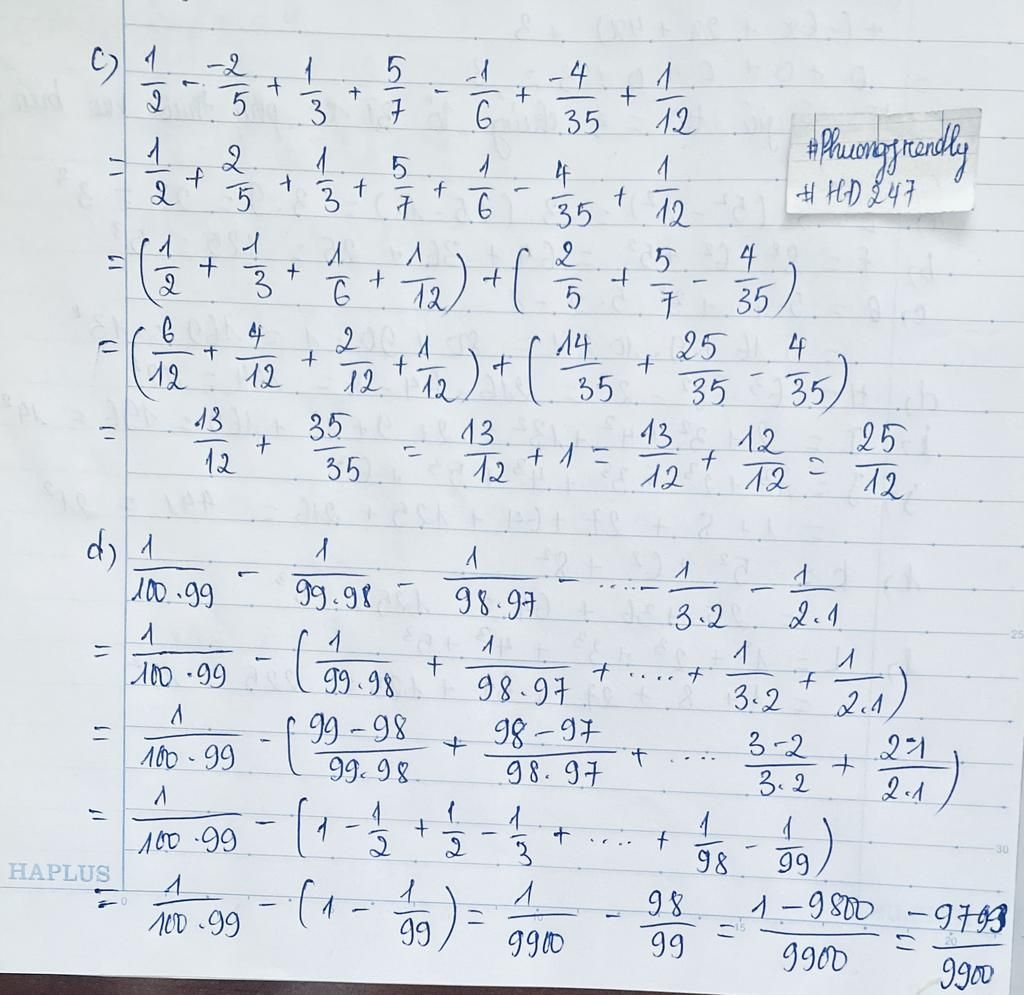 c) 1/2 - -2/5 + 1/3 + 5/7 - -1/6 + -4/35 + 1/12
#Phuongfrendly
= 1/2 + 2/5 + 1/3 + 5/7 + 1/6 - 4/35 + 1/12
#HD247
= (1/2 + 1/3 + 1/6 + 1/12) + (2/5 + 5/7 - 4/35)
= (6/12 + 4/12 + 2/12 + 1/12) + (14/35 + 25/35 - 4/35)
= 13/12 + 35/35 = 13/12 + 1 = 13/12 + 12/12 = 25/12
d) 1/100.99 - 1/99.98 - 1/98.97 - .... - 1/3.2 - 1/2.1
= 1/100.99 - (1/99.98 + 1/98.97 + .... + 1/3.2 + 1/2.1)
= 1/100.99 - (99-98/99.98 + 98-97/98.97 + .... 3-2/3.2 + 2-1/2.1)
= 1/100.99 - (1 - 1/2 + 1/2 - 1/3 + .... + 1/98 - 1/99)
HAPLUS
= 1/100.99 - (1 - 1/99) = 1/9900 - 98/99 = 1-9800/9900 = -9799/9900